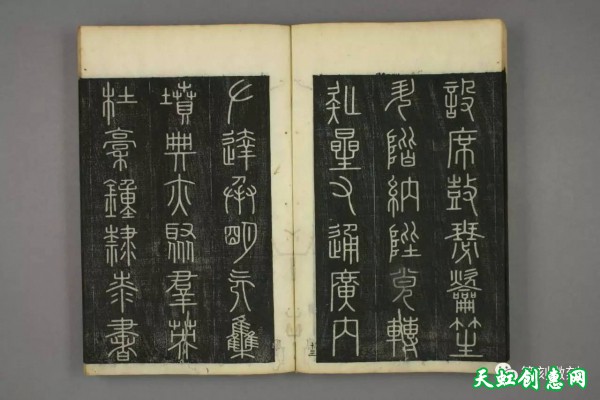 設席鼓瑟龡笙
升階納陛弁轉
疑星右通廣內
左達承明既集
墳典亦聚羣英
杜稾鐘隸漆書
十三
天虹创惠网